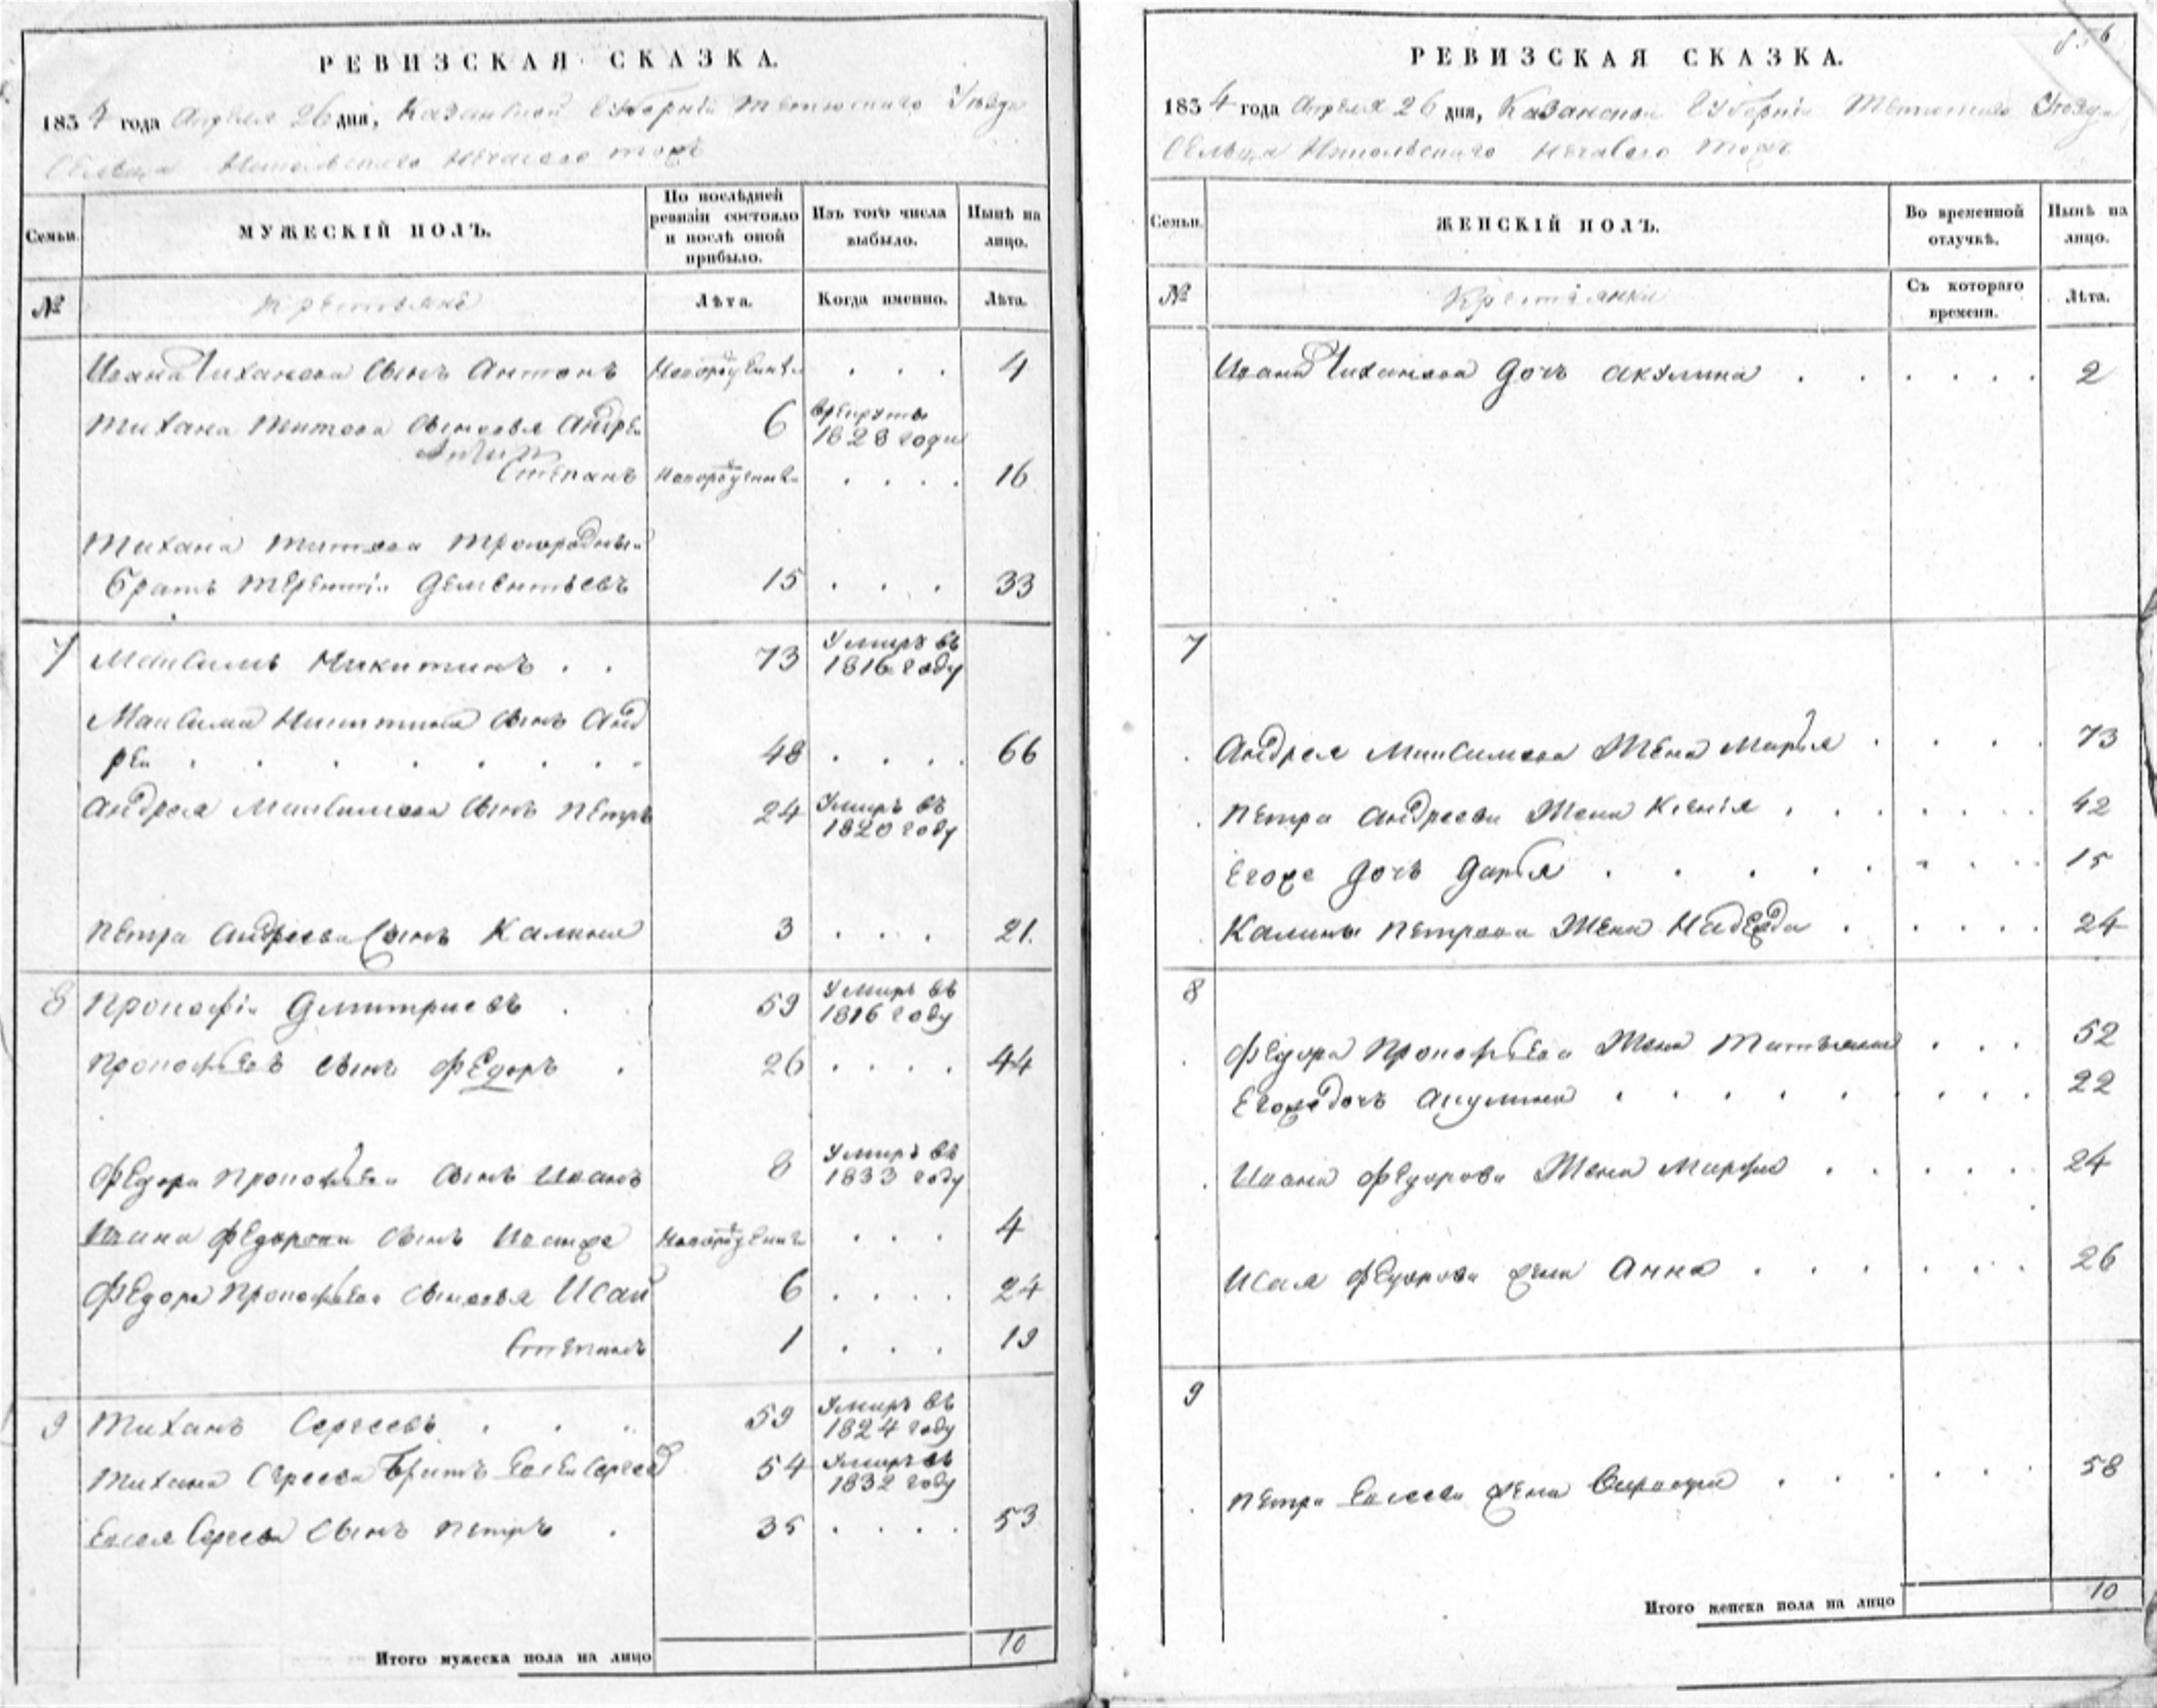 РЕВИЗСКАЯ СКАЗКА.
1834 года Апреля 26 дня, Казанской Губерніи Тетюшскаго Уезда
Сельца Никольскаго тожъ
Семьи.
МУЖЕСКІЙ ПОЛЪ.
По послѣдней ревизіи состояло и послѣ оной прибыло.
Изъ того числа выбыло.
Нынѣ на лицо.
№
Крестьяне
Лѣта.
Когда именно.
Лѣта.
Ивана Тиханова Сынъ Антонъ Новорожденны . . . 4
Тихана Титова Сыновья Андрей 6 врекруты 1828 года
Степанъ Новорожденны . . . . 16
Тихана Титова Троюродный
братъ Терентіи Дементьевъ 15 . . . 33
7 Максимъ Никитинъ . . 73 Умиръ въ 1816 году
Максима Никитина Сынъ Анд
рей . . . . . . . . 48 . . . . 66
Андрея Максимова Сынъ Петръ 24 Умиръ въ 1820 году
Петра Андреева Сынъ Калина 3 . . . 21.
8 Прокофіи Дмитриевъ . . 59 Умиръ въ 1816 году
Прокофьевъ Сынъ Федоръ . 26 . . . . 44
Федора Прокофьева Сынъ Иванъ 8 Умиръ въ 1833 году
Ивана Федорова Сынъ Новорожденны . . . 4
Федора Прокофьева Сыновья Исай 6 . . . . 24
Степанъ 1 . . . 19
9 Тиханъ Сергеевъ . . . 59 Умиръ въ 1824 году
Тихана Сергеева Братъ Евсей Сергеев 54 Умиръ въ 1832 году
Евсея Сергеева Сынъ Петръ . 35 . . . . 53
Итого мужеска пола на лицо 10
РЕВИЗСКАЯ СКАЗКА.
1834 года Апреля 26 дня, Казанской Губерніи Тетюшскаго Уезда
Сельца Никольскаго тожъ
Семьи.
ЖЕНСКІЙ ПОЛЪ.
Во временной отлучкѣ.
Нынѣ на лицо.
№
Крестьянки
Съ котораго времени.
Лѣта.
Ивана Тиханова дочь Акулина . . . . . . 2
7
Андрея Максимова Жена Марья . . . . 73
Петра Андреева Жена Ксенія . . . . . . 42
Егоже дочь Дарья . . . . . . . . . 15
Калины Петрова Жена Надежда . . . . . 24
8
Федора Прокофьева Жена Татьяна . . . 52
Егоже дочь Акулина . . . . . . . . . 22
Ивана Федорова Жена Марфа . . . . . 24
Исая Федорова жена Анна . . . . . . 26
9
Петра Евсеева жена . . . . . . 58
Итого женска пола на лицо 10